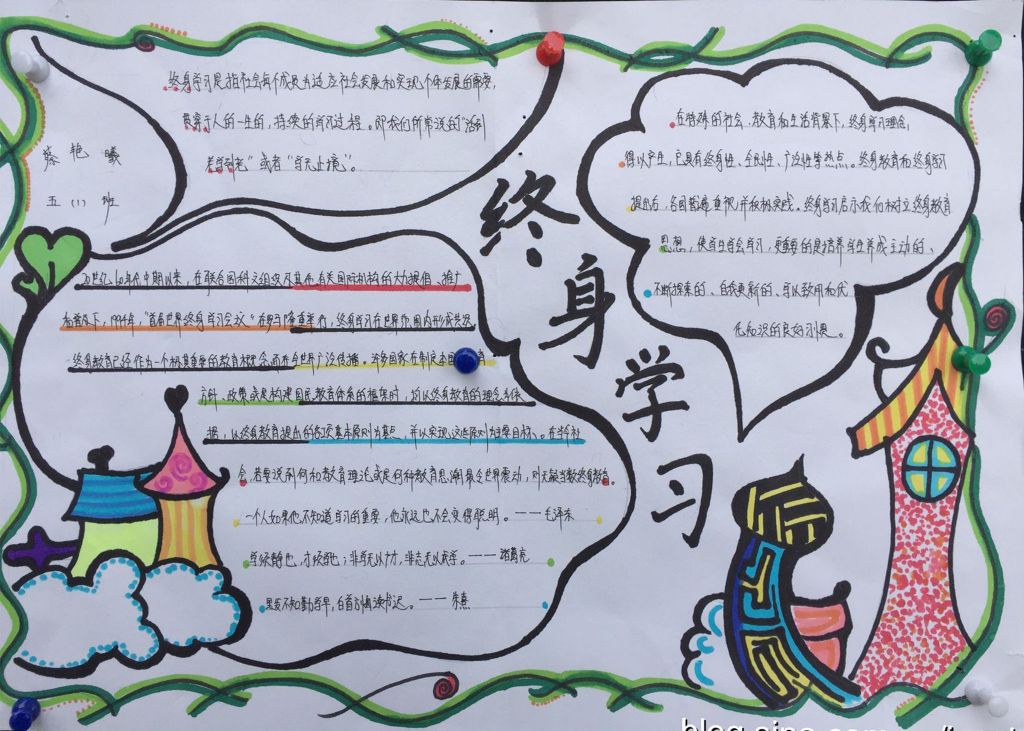 终身学习是指社会每个成员为适应社会发展和实现个体发展的需要,
贯穿于人的一生的,持续的学习过程。即我们所常说的"活到
老学到老"或者"学无止境"。
蔡艳曦
五(1)班
终身学习
在特殊的社会、教育和生活背景下,终身学习理念,
得以产生,它具有终身性、全民性、广泛性等特点。终身教育和终身学习
提出后,各国普遍重视并积极实践。终身学习启示我们树立终身教育
思想,使学生学会学习,更重要的是培养学生养成主动的、
不断探索的、自我更新的、学以致用和优
化知识的良好习惯。
20世纪60年代中期以来,在联合国科文组织及其他有关国际机构的大力提倡、推广
和普及下,1994年,"首届世界终身学习会议"在罗马隆重举行,终身学习在世界范围内形成共识
终身教育已经作为一个极其重要的教育概念而在全世界广泛传播。许多国家在制定本国教育
方针、政策或是构建国民教育体系的框架时,均以终身教育的理念为依
据,以终身教育提出的各项基本原则为基点,并以实现这些原则为主要目标。在当今社
会,若要说到何种教育理论或是何种教育思潮最令世界震动,则无疑当数终身教育。
一个人如果他不知道学习的重要,他永远也不会变得聪明。——毛泽东
学须静也,才须学也;非学无以广才,非志无以成学。——诸葛亮
黑发不知勤学早,白首方悔读书迟。——朱熹